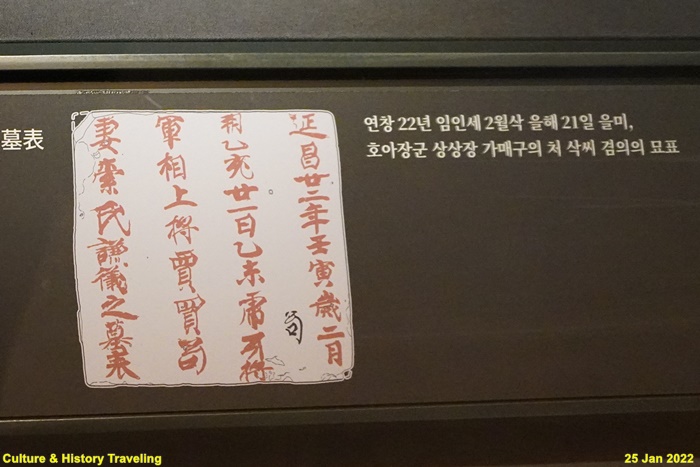 墓表
延昌廿二年壬寅歲二月
朔乙亥廿一日乙未虎牙將
軍相上將賈買苟
妻索氏謙儀之墓表
苟
연창 22년 임인세 2월삭 을해 21일 을미,
호아장군 상상장 가매구의 처 삭씨 겸의의 묘표
Culture & History Traveling
25 Jan 2022